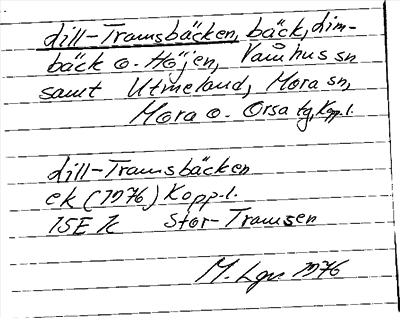 Lill-Tramsbäcken, bäck, Lim-
bäck o. Höjen, Våmhus sn
samt Utmeland, Mora sn,
Mora o. Orsa tg, Kopp. l.
Lill-Tramsbäcken
ek (1976) Kopp. l.
15E 7c Stor-Tramsen
M. Lgn 1976